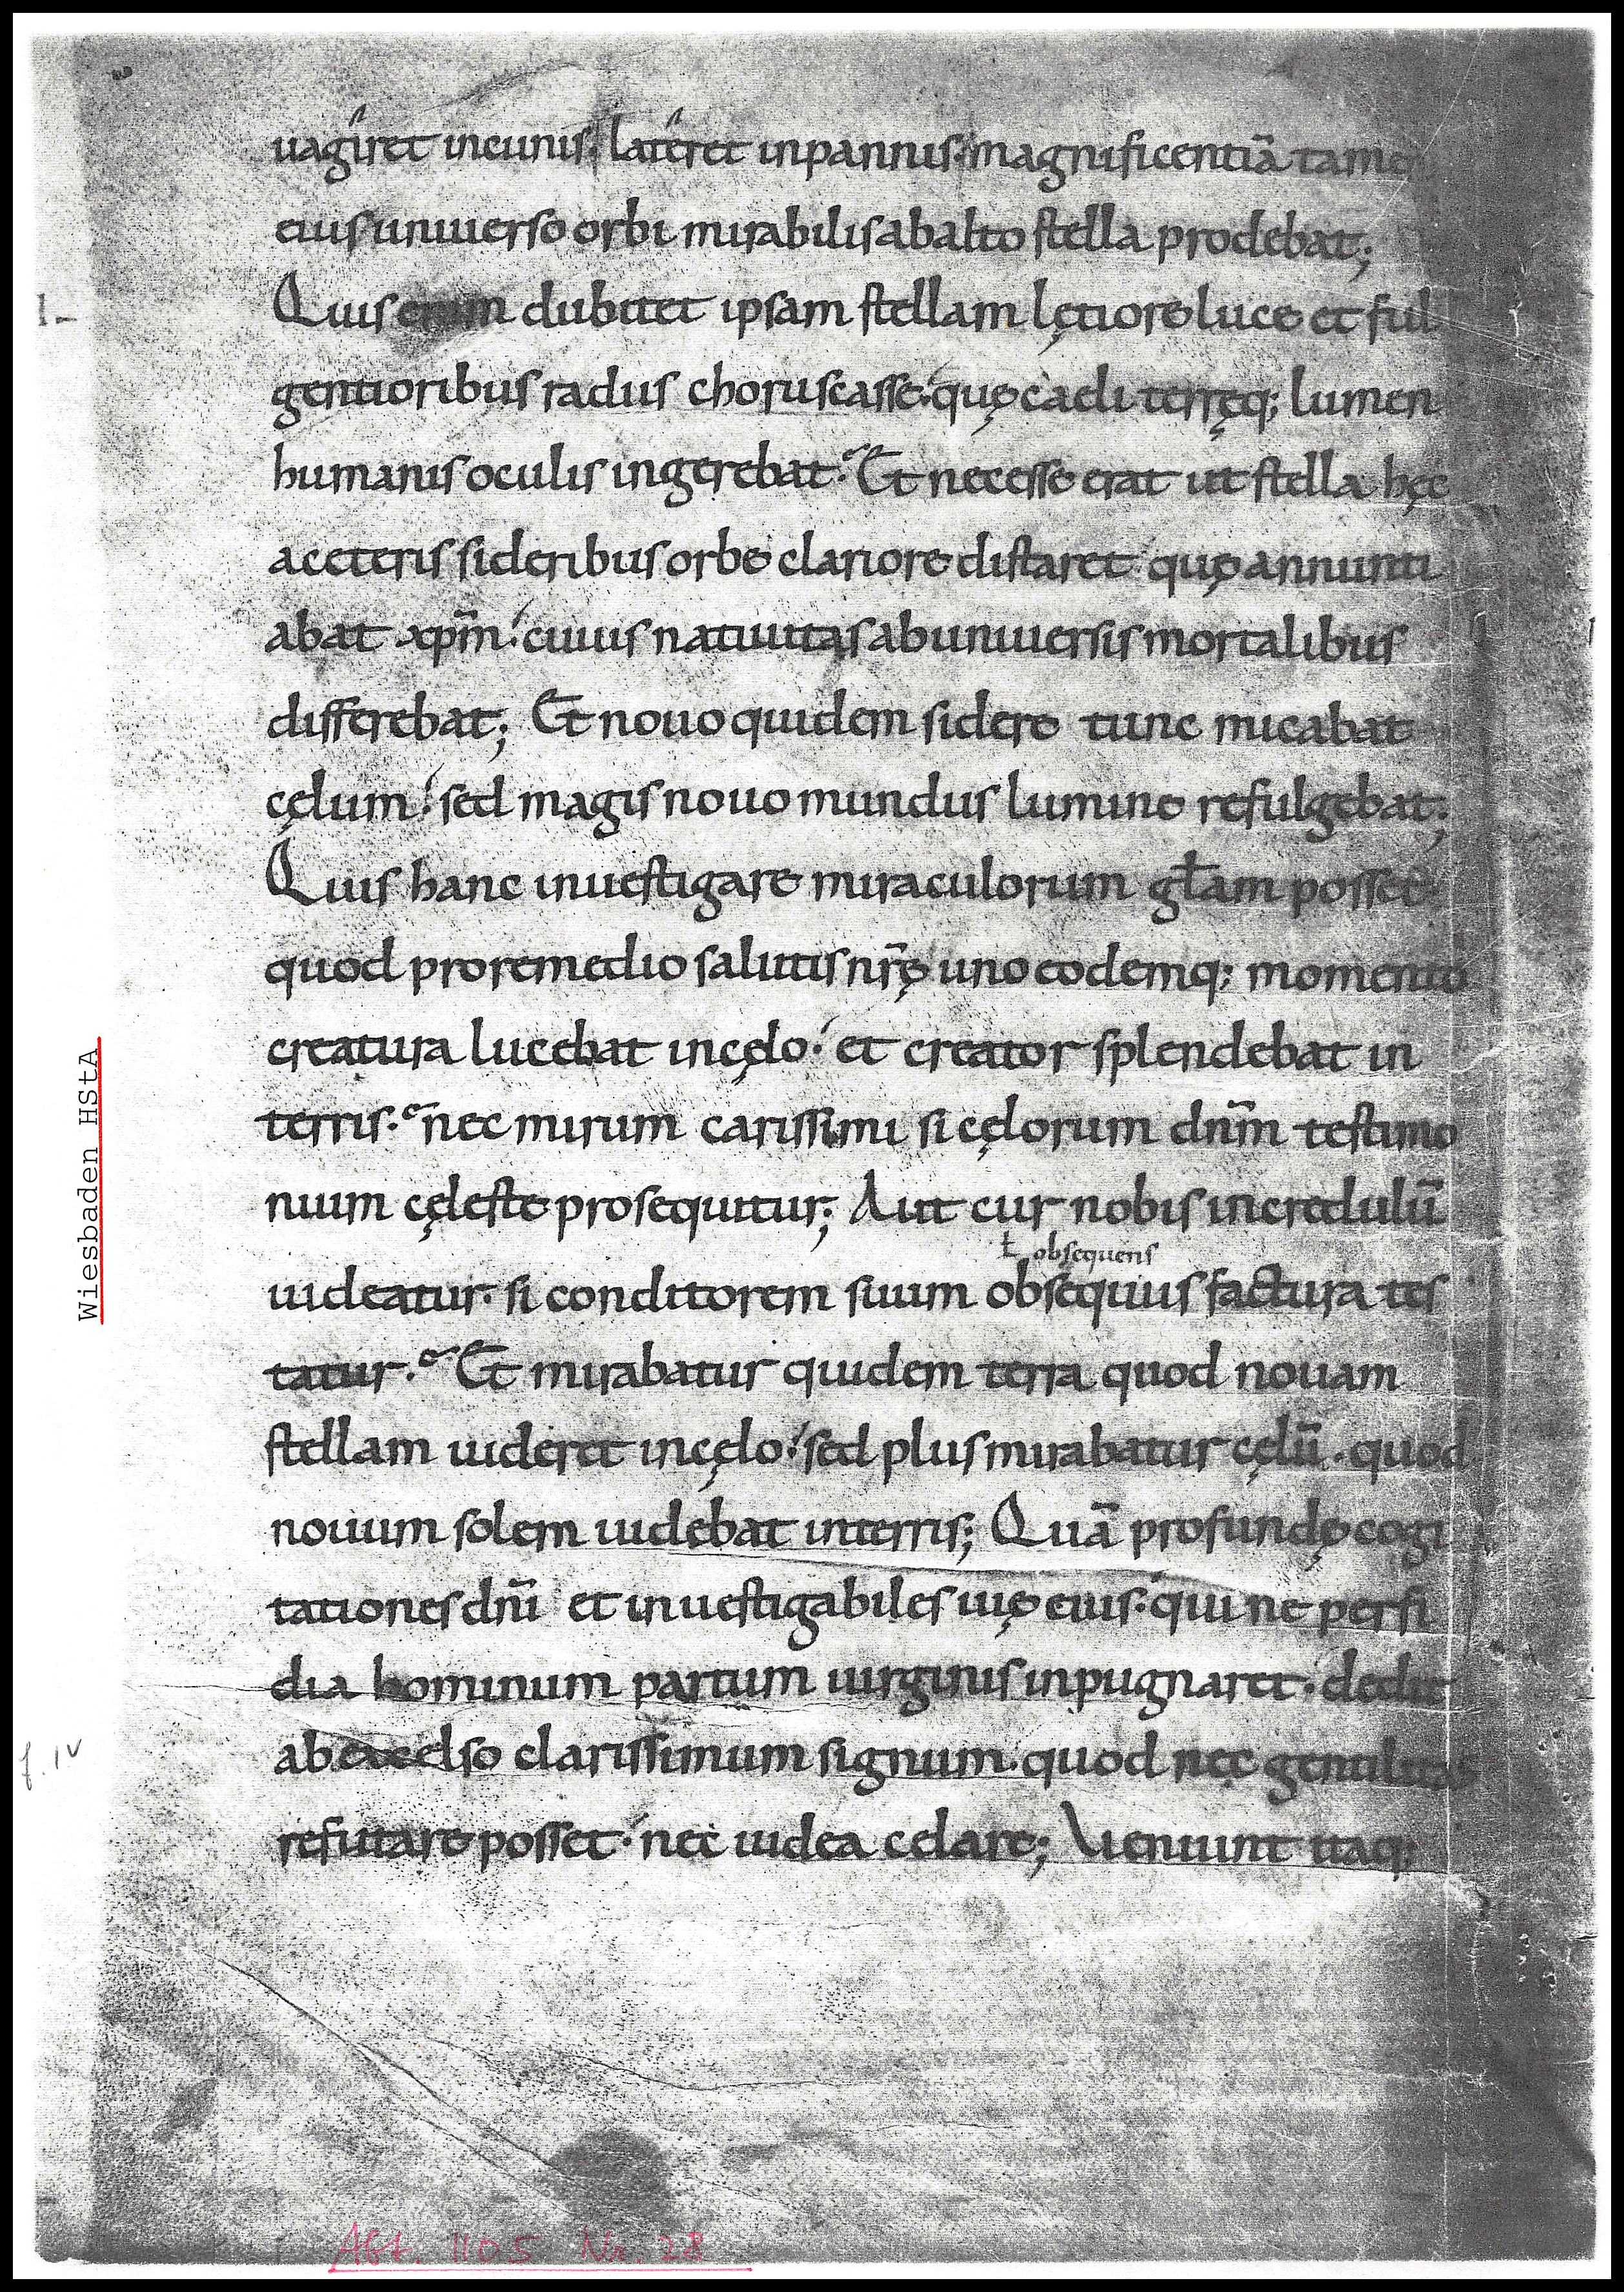 uagiret incunis· lateret inpannis· magnificentiā tamen
eiusuniuerso orbi mirabilisabalto stella prodebat;
Quis enim dubitet ipsam stellam lętiore luce et ful
gentioribus radiis choruscasse· quę caeli terręq; lumen
humanis oculis ingerebat· Et necesse erat ut stella hęc
aceteris sideribus orbe clariore distaret quę annunti
abat xp̄m· cuius natiuitas abuniuersis mortalibus
differebat; Et nouo quidem sidere tunc micabat
cęlum· sed magis nouo mundus lumine refulgebat;
Quis hanc inuestigare miraculorum gƚam posset·
quod proremedio salutis nr̄ę uno eodemq; momento
creatura lucebat incęlo· et creator splendebat in
terris· nec mirum carissimi si cęlorum dnm̄ testimo
nium cęleste prosequitur; Aut cur nobis incredulū
ƚ obsequens
uideatur· si conditorem suum obsequiis factura tes
tatur· Et mirabatur quidem terra quod nouam
stellam uideret incęlo· sed plus mirabatur cęlū· quod
nouum solem uidebat interris; Quā profundę cogi
tationes dnī et inuestigabiles uię eius· qui ne perfi
dia hominum partum uirginis inpugnaret· dedit
abexcelso clarissimum signum· quod nec gentilitas
refutare posset· nec iudea celare; Ueniunt itaq;
Wiesbaden HStA
f. 1v
Abt. 1105 Nr. 28